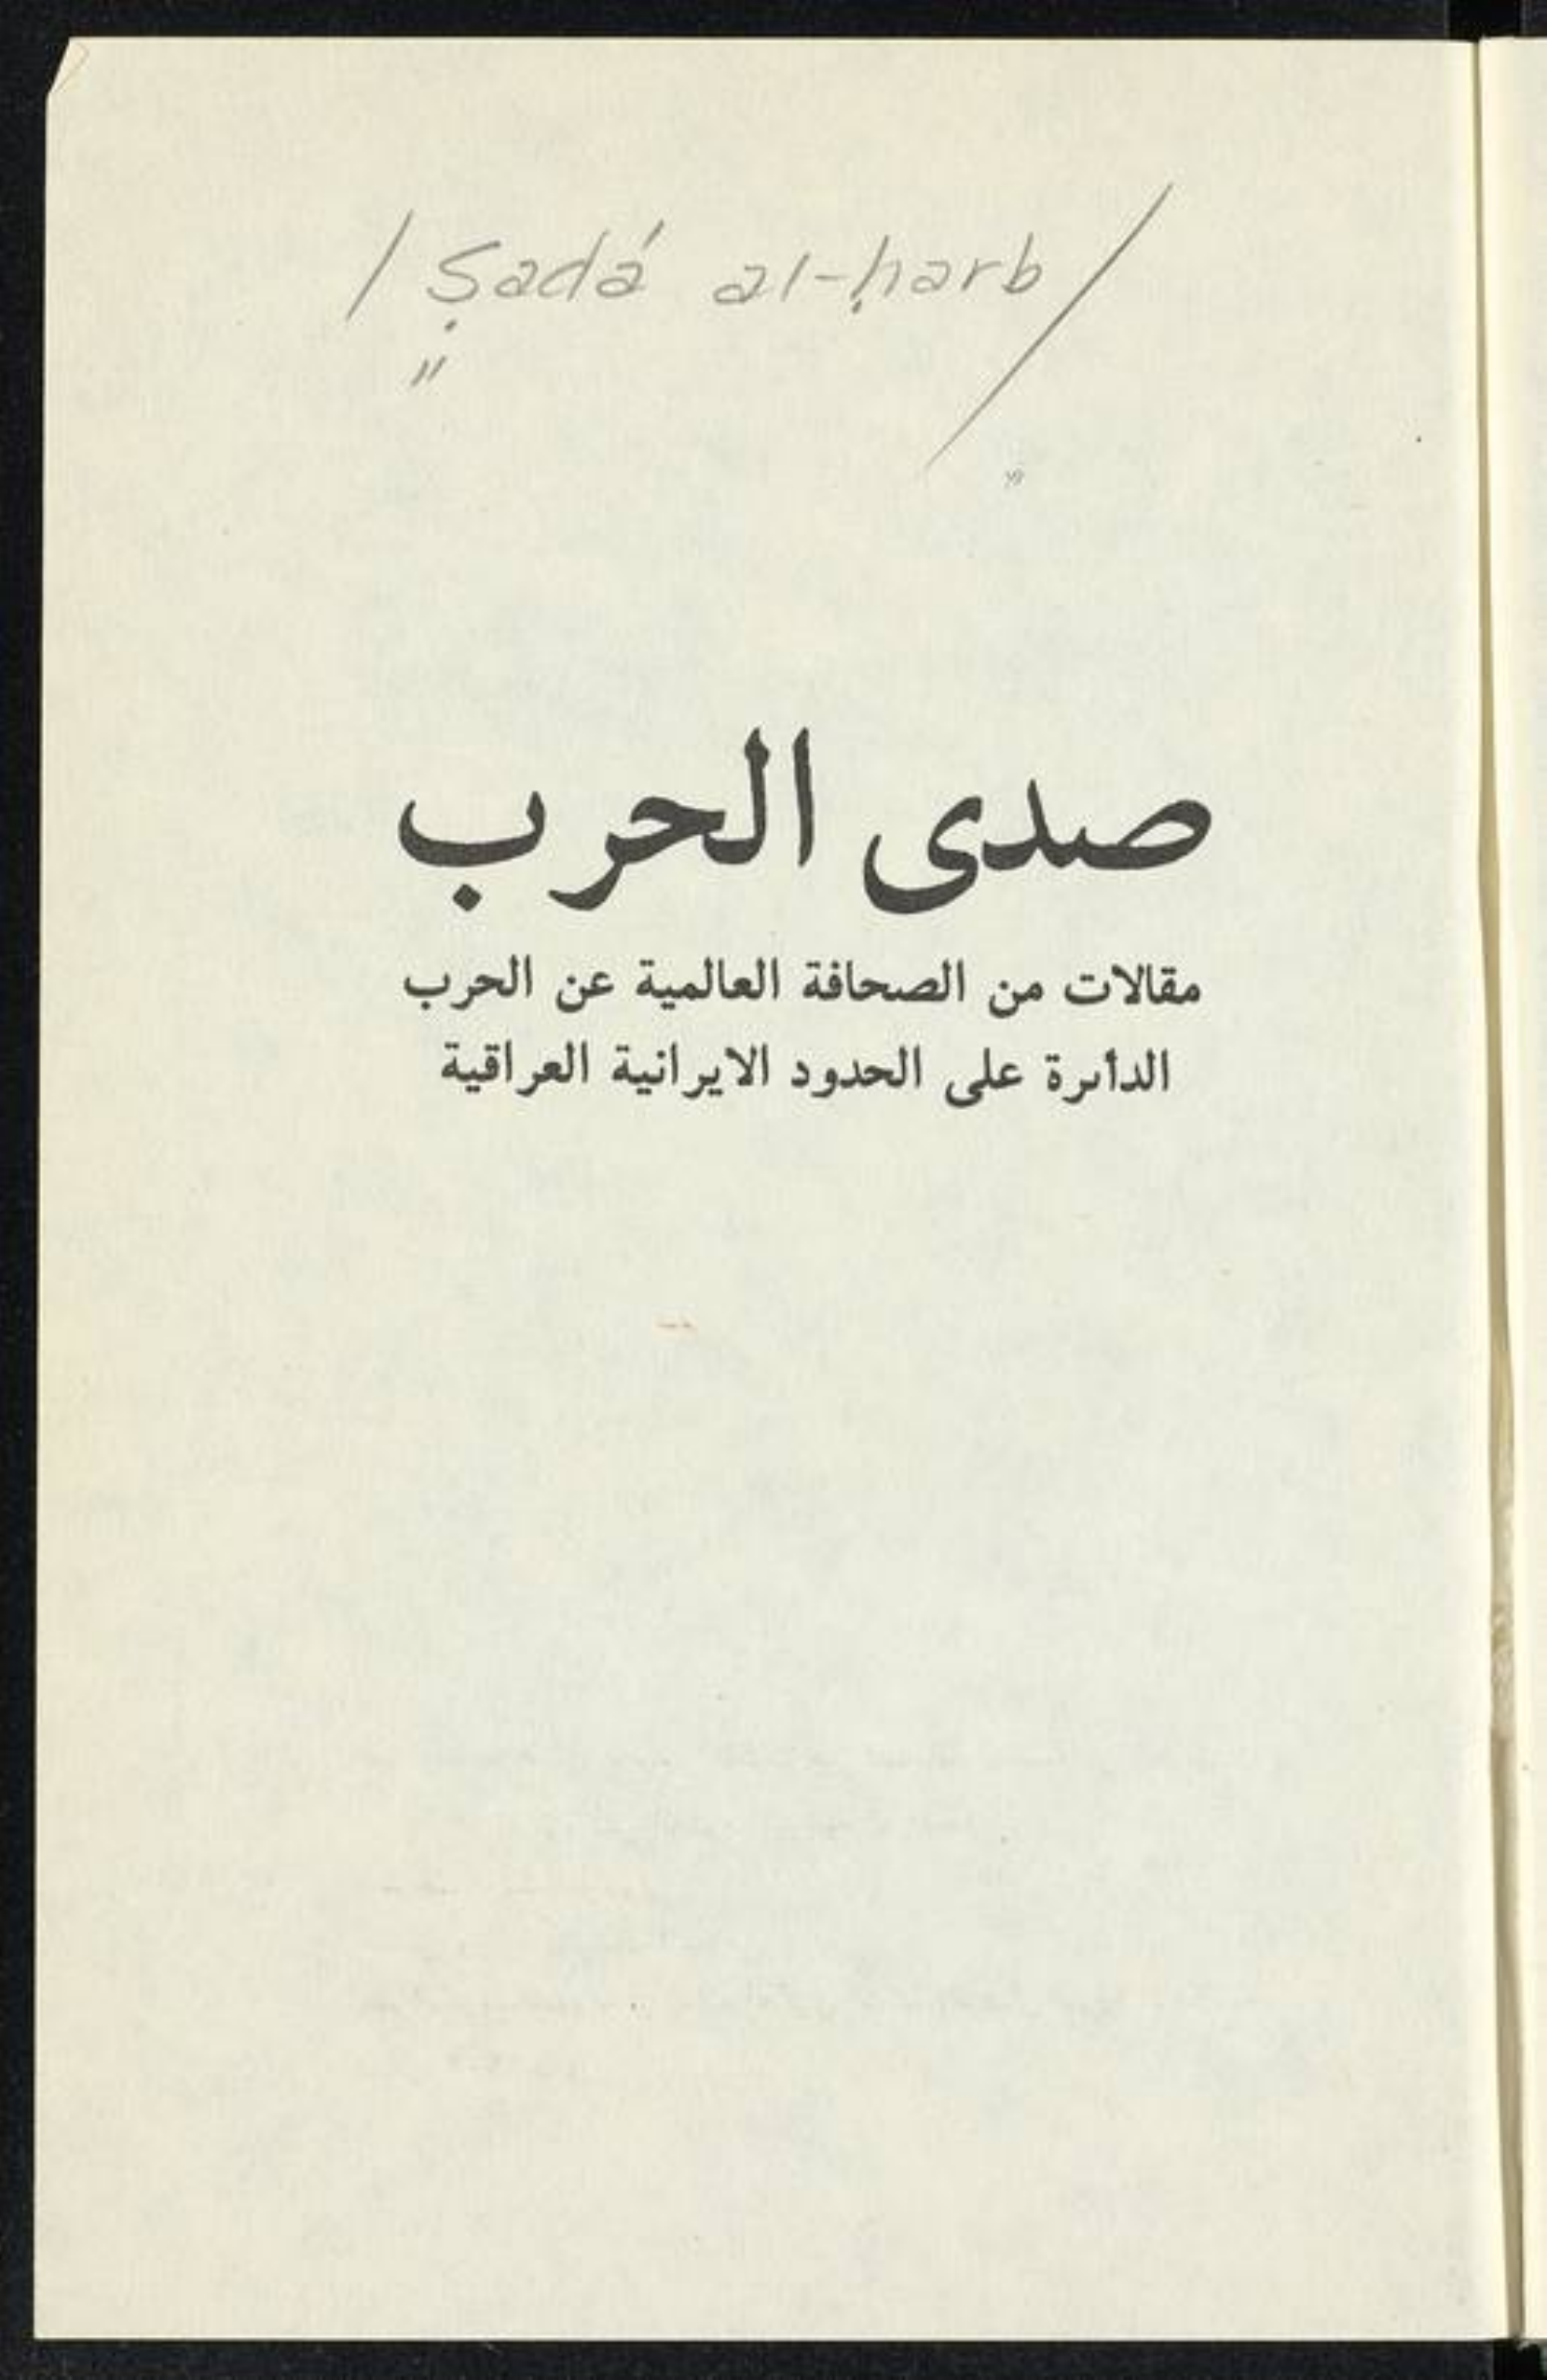 / Ṣadá al-ḥarb /
"
"
صدى الحرب
مقالات من الصحافة العالمية عن الحرب
الدأىرة على الحدود الايرانية العراقية